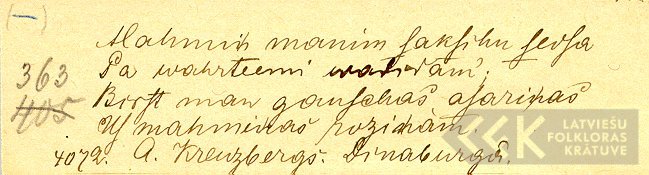 (–)
Mahmiņ manim sakschu sedsa
363
Pa wahrteemi wadidam';
405
Birst man gauschas asariņas
Us mahmiņas roziņam.
4072. A. Kreuzbergs. Dinaburgā.
LATVIEŠU
FOLKLORAS
KRĀTUVE